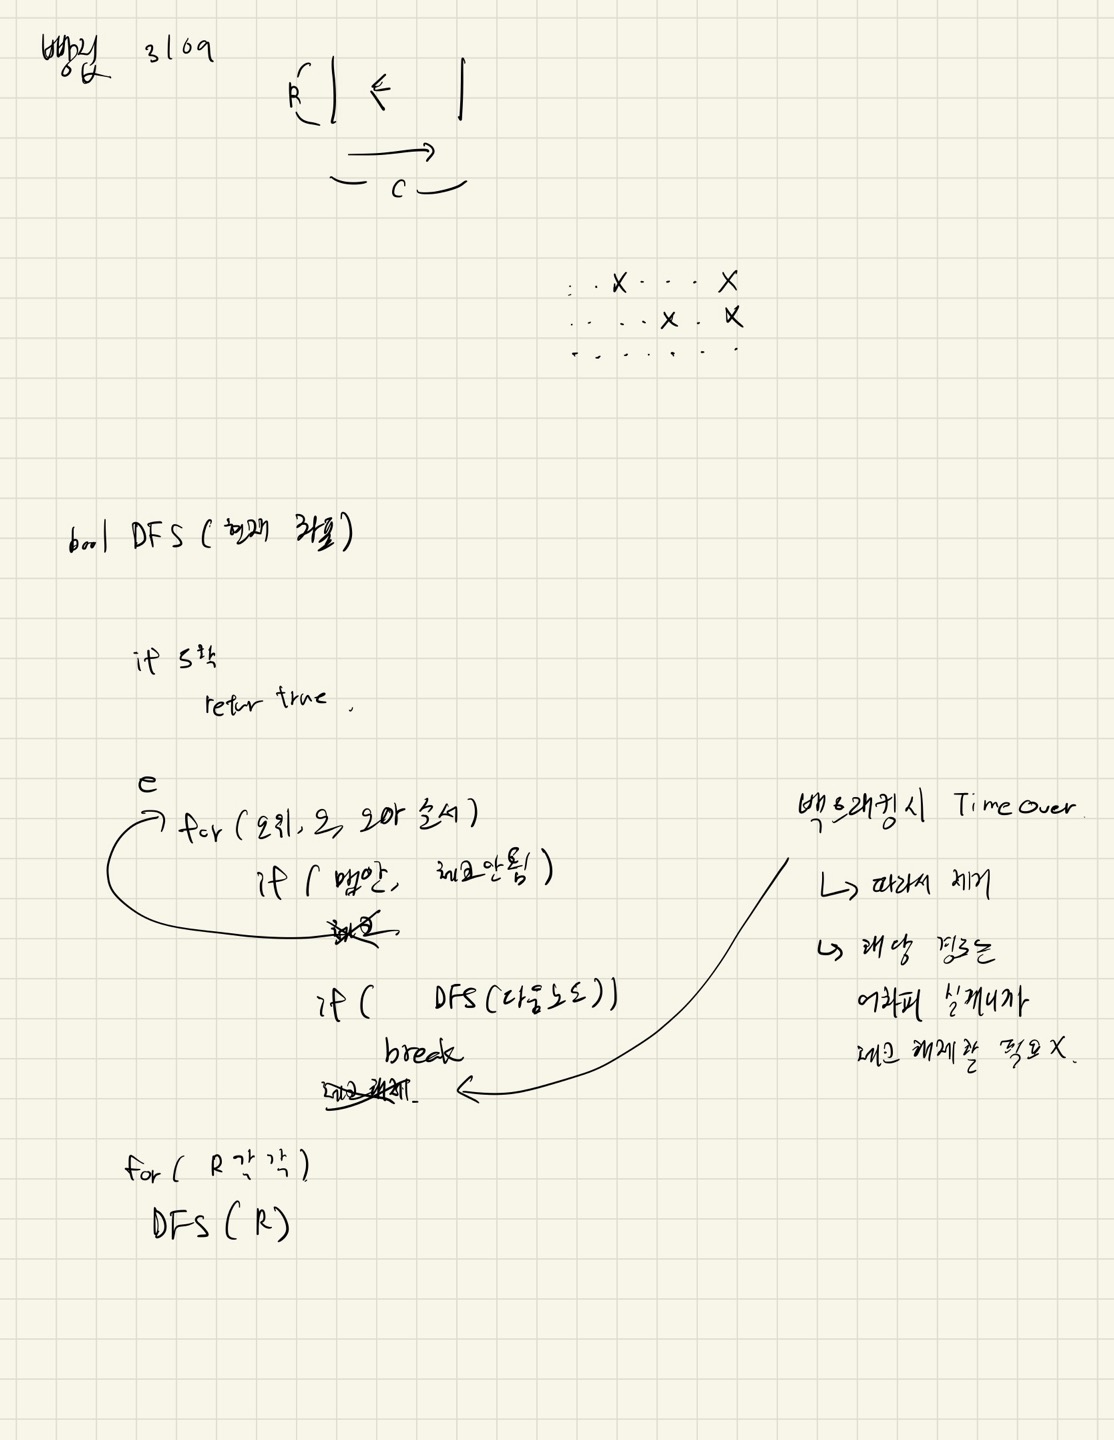 빵집 3109
R
C
. . X . . . X
. . . . X . X
. . . . . . .
bool DFS (현재 좌표)
if 도착
retur true .
for (오위, 오, 오아 순서)
if ( 맵안, 체크안됨 )
if ( DFS(다음노드))
break
for ( R 각각)
DFS ( R )
백트래킹시 Time over
↳ 따라서 제거
↳ 해당 경로는
어차피 실패니까
체크 해제할 필요 X.